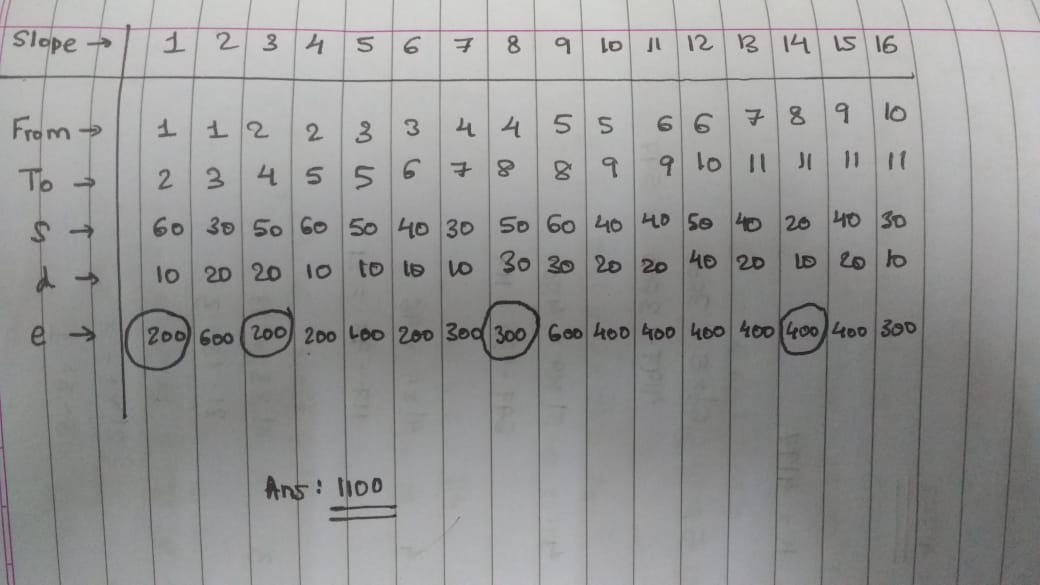 Slope → 1 2 3 4 5 6 7 8 9 10 11 12 13 14 15 16
From → 1 1 2 2 3 3 4 4 5 5 6 6 7 8 9 10
To → 2 3 4 5 5 6 7 8 8 9 9 10 11 11 11 11
S → 60 30 50 60 50 40 30 50 60 40 40 50 40 20 40 30
d → 10 20 20 10 10 10 10 30 30 20 20 40 20 10 20 10
e → 200 600 200 200 400 200 300 300 600 400 400 400 400 400 400 300
Ans: 1100